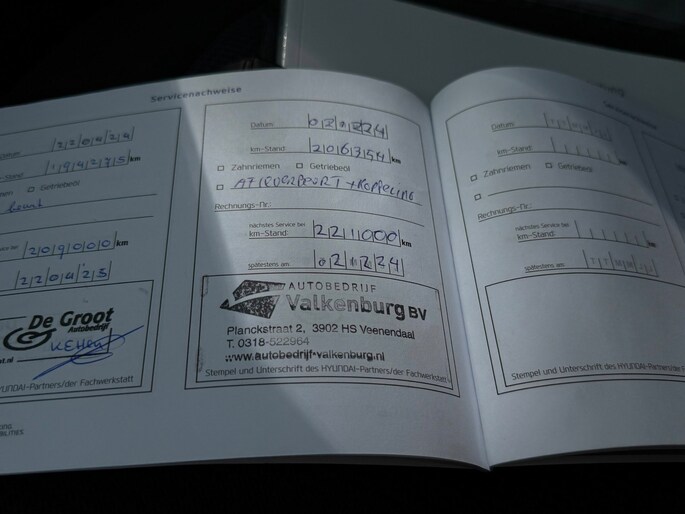 Servicenachweise
Datum: 22 04 24
-Stand: 194 275 km
Getriebeöl
209000 km
22 04 25
De Groot
Autobedrijf
st.nl
HYUNDAI-Partners/der Fachwerkstatt
Datum:
km-Stand: 206 354 km
Zahnriemen
Getriebeöl
+ KOPPELING
Rechnungs-Nr.:
nächstes Service bei
km-Stand: 221000 km
spätestens am:
AUTOBEDRIJF
Valkenburg BV
Planckstraat 2, 3902 HS Veenendaal
T. 0318-522964
www.autobedrijf-valkenburg.nl
Stempel und Unterschrift des HYUNDAI-Partners/der Fachwerkstatt
Datum:
km-Stand: km
Zahnriemen
Getriebeöl
Rechnungs-Nr.:
nächstes Service bei
km-Stand: km
spätestens am:
Stempel und Unterschrift des HYUNDAI-Partners/der